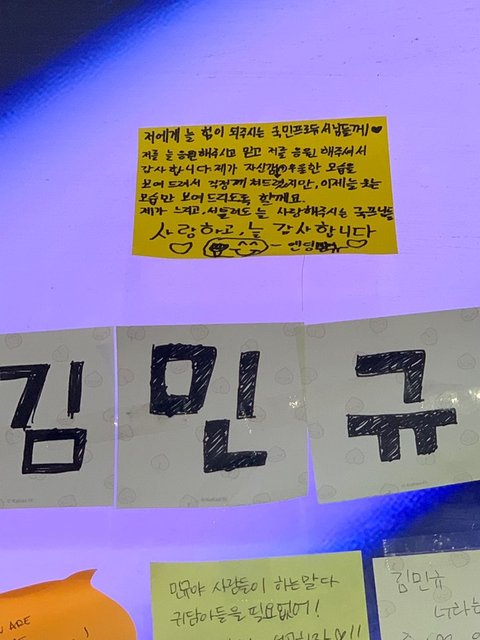 저에게 늘 힘이 되주시는 국민프로듀서님들께! ♥
저를 늘 응원해주시고 믿고 저를 응원 해주셔서
감사합니다. 제가 자신감 우울한 모습을
보여 드려서 걱정끼쳐드렸지만, 이제 늘 웃는
모습만 보여 드리도록 할께요.
제가 느리고, 서툴러도 늘 사랑해주시는 국프님들
사랑하고, 늘 감사합니다
♡ ^^ - 엔딩 ♡
김민규
민규야 사람들이 하는말 다
귀담아들을 필요없어!
♡!!
김민규
너라는
ARE